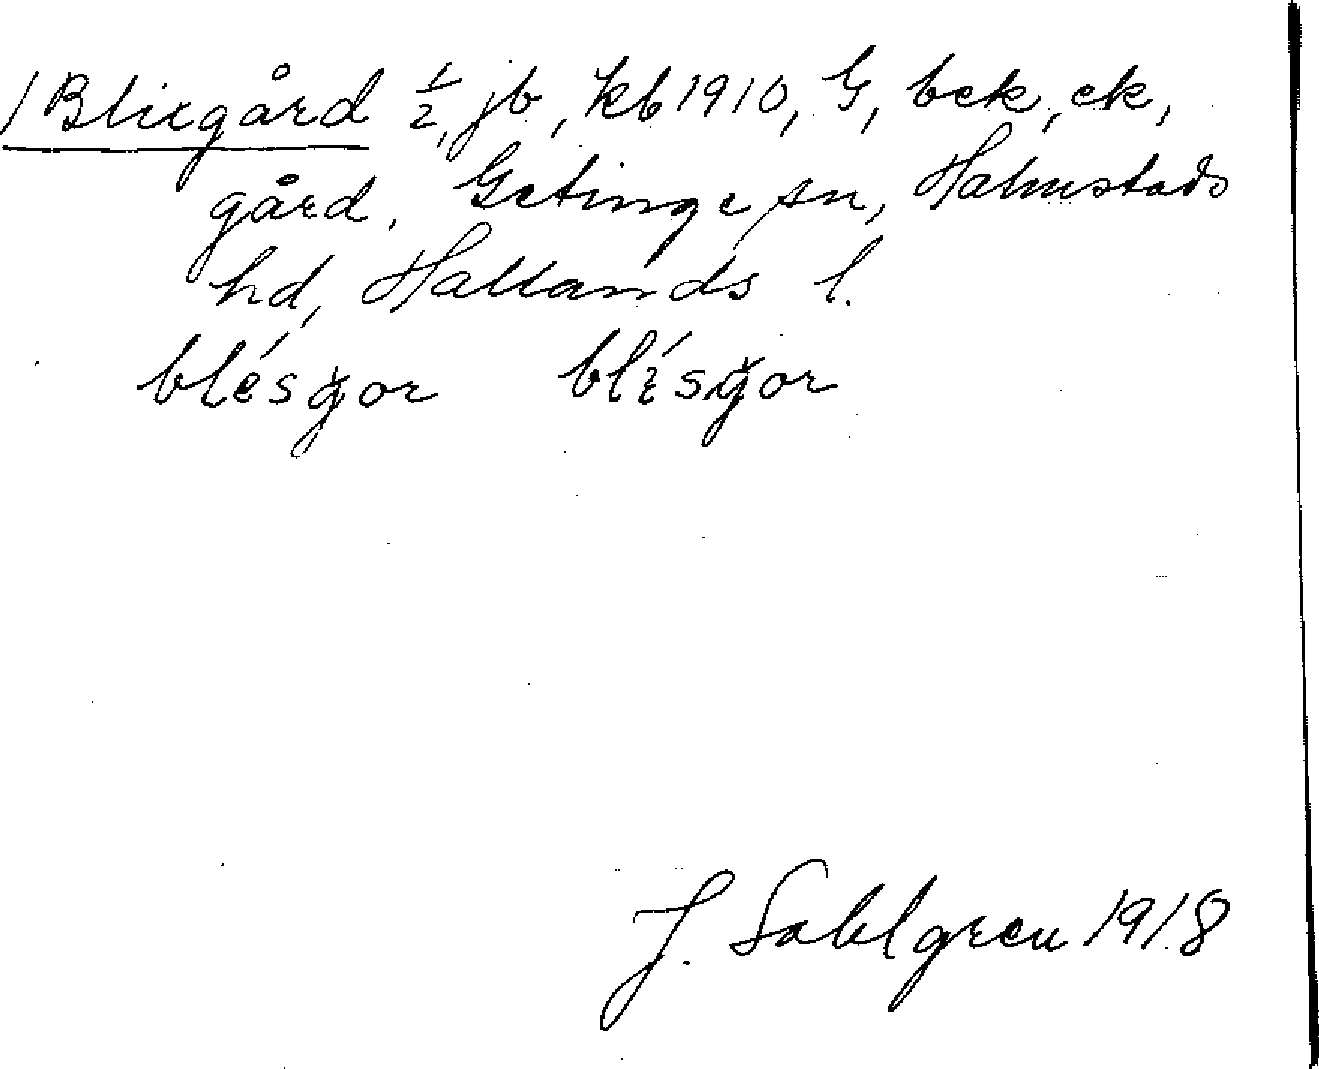 /Blixgård ½, jb, kb 1910, G, bek, ek,
gård, Getinge sn, Halmstads
hd, Hallands l.
J. Sahlgren 1918